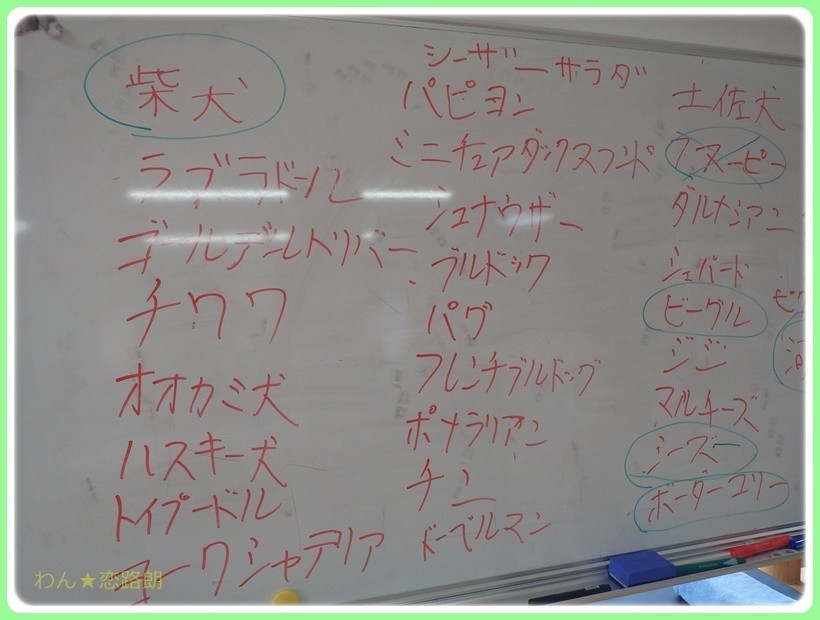 柴犬
ラブラドール
ゴールデールトリバー
チワワ
オオカミ犬
ハスキー犬
トイプードル
ヨークシャテリア
シーザーサラダ
パピヨン
ミニチュアダックスフンド
シュナウザー
ブルドック
パグ
フレンチブルドッグ
ポメラリアン
チン
ドーベルマン
土佐犬
スヌーピー
ダルメシアン
シェパード
ビーグル
ジジ
マルチーズ
シーズー
ボーダーコリー
わん★恋路朗